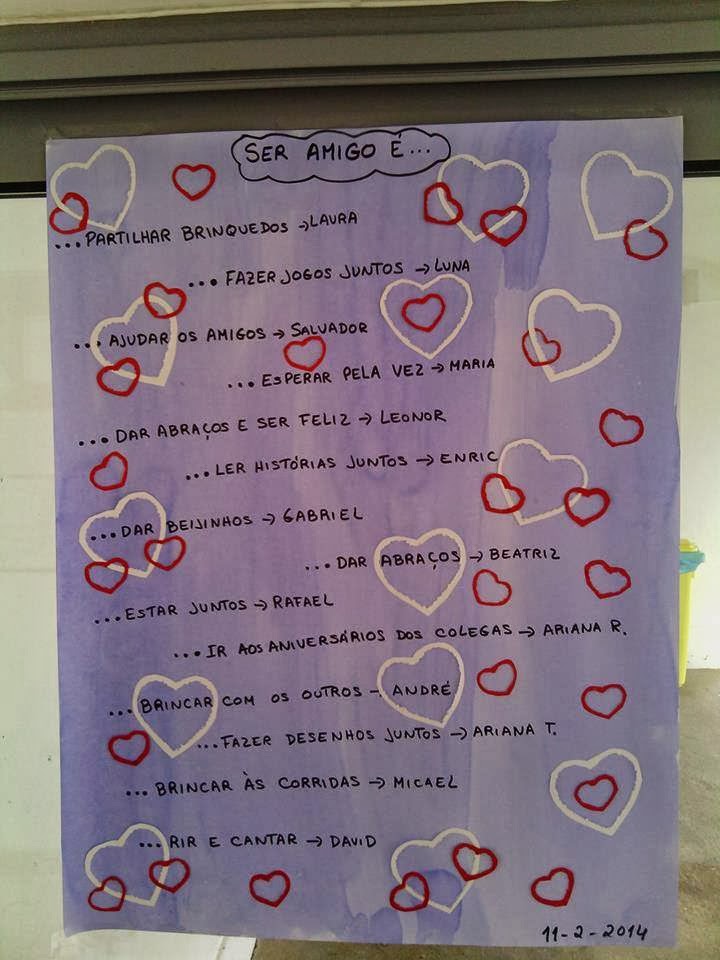 SER AMIGO É...
...PARTILHAR BRINQUEDOS → LAURA
...FAZER JOGOS JUNTOS → LUNA
...AJUDAR OS AMIGOS → SALVADOR
...ESPERAR PELA VEZ → MARIA
...DAR ABRAÇOS E SER FELIZ → LEONOR
...LER HISTÓRIAS JUNTOS → ENRIC
...DAR BEIJINHOS → GABRIEL
...DAR ABRAÇOS → BEATRIZ
...ESTAR JUNTOS → RAFAEL
...IR AOS ANIVERSÁRIOS DOS COLEGAS → ARIANA R.
...BRINCAR COM OS OUTROS → ANDRÉ
...FAZER DESENHOS JUNTOS → ARIANA T.
...BRINCAR ÀS CORRIDAS → MICAEL
...RIR E CANTAR → DAVID
11-2-2014